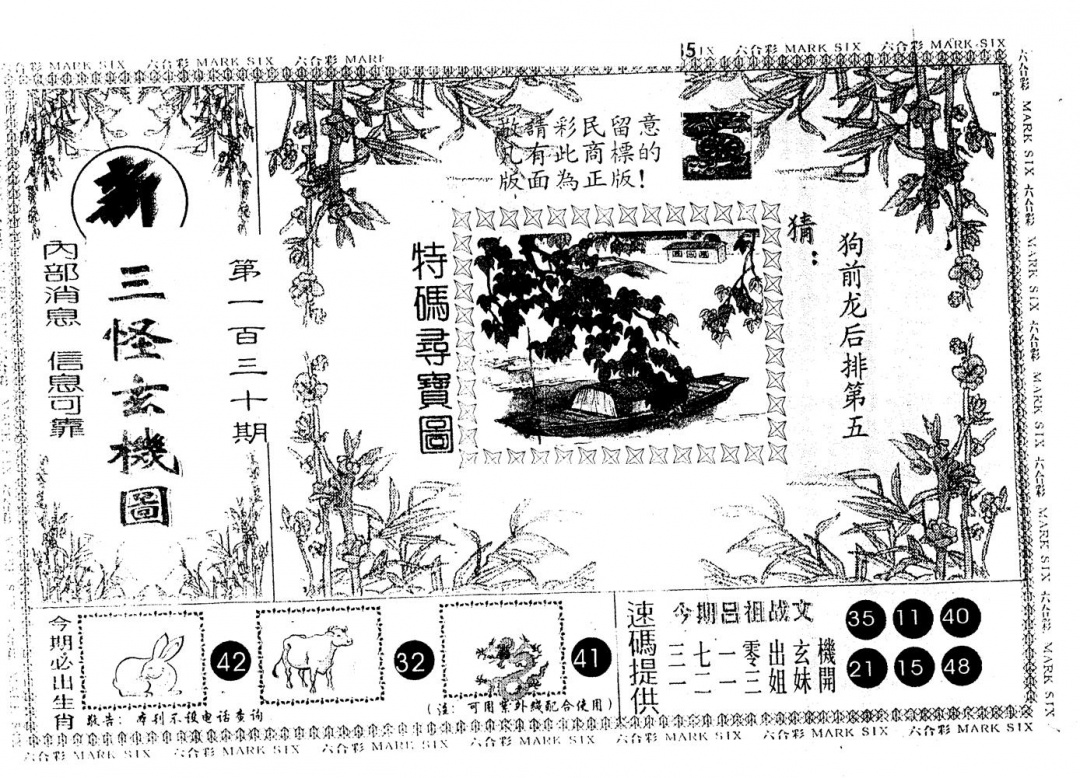 六合彩 MARK SIX 六合彩 MARK SIX 六合彩 MARK
SIX 六合彩 MARK SIX 六合彩 MARK SIX
敬請彩民留意
凡有此商標的
版面為正版！
新
三怪玄機圖
內部消息 信息可靠
第一百三十期
特碼尋寶圖
猜：
狗前龙后排第五
今期必出生肖
42
32
41
敬告：本刊不设电话查询
（注：可用紫外线配合使用）
速碼提供
今期吕祖战文
三七一零出玄機
二一一三姐妹開
35 11 40
21 15 48
六合彩 MARK SIX 六合彩 MARK SIX 六合彩 MARK SIX 六合彩 MARK SIX 六合彩 MARK SIX 六合彩 MARK SIX 六合彩 MARK SIX
六合彩 MARK SIX 六合彩 MARK SIX 六合彩 MARK SIX 六合彩 MARK SIX 六合彩 MARK SIX